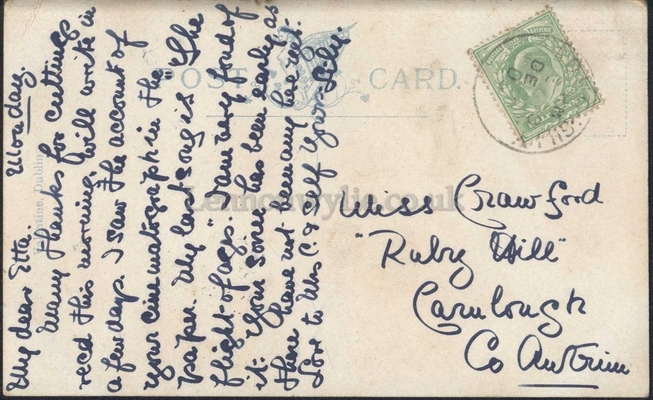 Monday.
My dear Etta.
Many thanks for cuttings
recd this morning, will write in
a few days. I saw the account of
your cinematograph in the
paper. My last song is "The
flight of ages." I am very fond of
it. Your soirée has been early, as
there have not been many here yet.
Love to Mrs C. & Self Yours Lily.
POST CARD.
Miss Crawford
"Ruby Hill"
Carnlough
Co Antrim
DE
Dublin
Lennonwylie.co.uk